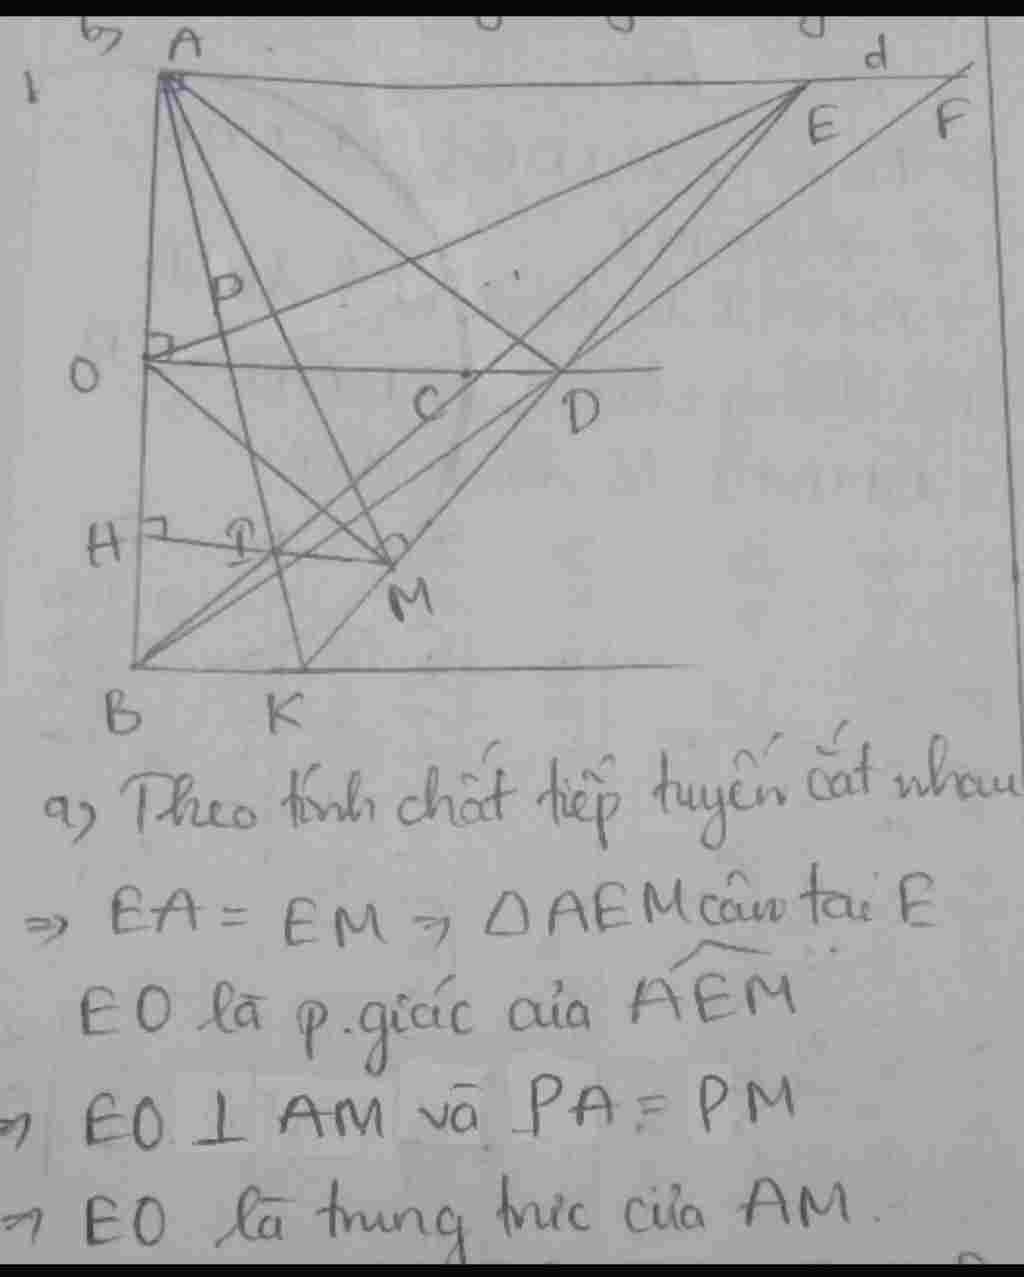 b)
A
d
1
E
F
P
O
C
D
H
I
M
B
K
a) Theo tính chất tiếp tuyến cắt nhau
=> EA = EM => ΔAEM cân tại E
EO là p.giác của AEM
=> EO ⊥ AM và PA = PM
=> EO là trung trực của AM.